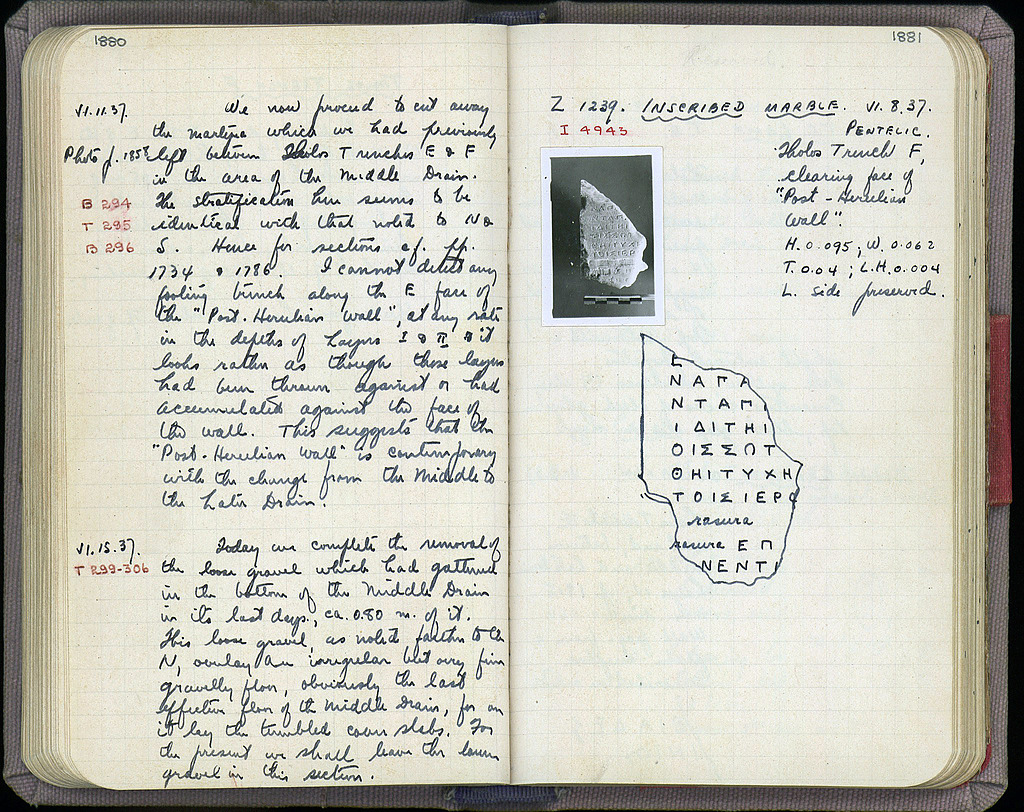 1880
VI.11.37. We now proceed to cut away
the martyra which we had previously
Photo p. 1858 left between Tholos Trenches E & F
in the area of the Middle Drain.
B 294 The stratification here seems to be
T 295 identical with that noted to N &
B 296 S. Hence for sections cf. pp.
1734 & 1786. I cannot detect any
footing trench along the E face of
the "Post-Herulian Wall", at any rate
in the depths of Layers I & II & it
looks rather as though those layers
had been thrown against or had
accumulated against the face of
the wall. This suggests that the
"Post-Herulian Wall" is contemporary
with the change from the Middle to
the Later Drain.
VI.15.37. Today we complete the removal of
T 299-306 the loose gravel which had gathered
in the bottom of the Middle Drain
in its last days, ca. 0.80 m. of it.
This loose gravel, as noted farther to the
N, overlay an irregular but very firm
gravelly floor, obviously the last
effective floor of the Middle Drain, for on
it lay the tumbled cover slabs. For
the present we shall leave the lower
gravel in this section.
1881
Reserved.
Z 1239. INSCRIBED MARBLE. VI.8.37.
I 4943 PENTELIC.
Tholos Trench F,
clearing face of
"Post-Herulian
Wall".
H. 0.095; W. 0.062
T. 0.04; L.H. 0.004
L. side preserved.
Ε
ΝΑΠΑ
ΝΤΑΠΙ
ΙΔΙΤΗΙ
ΟΙΣΣΩΤ
ΘΗΙΤΥΧΗ
ΤΟΙΣΙΕΡΟ
rasura
rasura ΕΠ
ΝΕΝΤΙ